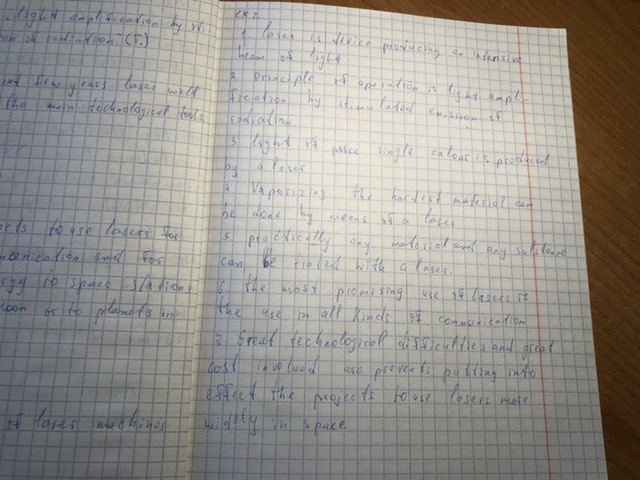 light amplification by st
on of radiation. (T.)
few years laser will
the main technological tools
cts to use lasers for
munication and for
rgy to space stations
oon or to planets in
of laser machines
ex 2
1 laser is device producing an intensive
beam of light
2 principle of operation is light ampli-
fication by stimulated emission of
radiation.
3 light of pure single colour is produced
by a laser
4 Vaporizing the hardest material can
be done by means of a laser
5 practically any material and any substance
can be with a laser.
6 the most promising use of lasers is
the use in all kinds of communication
7 Great technological difficulties and great
cost involved are prevents putting into
effect the projects to use lasers more
widely in space